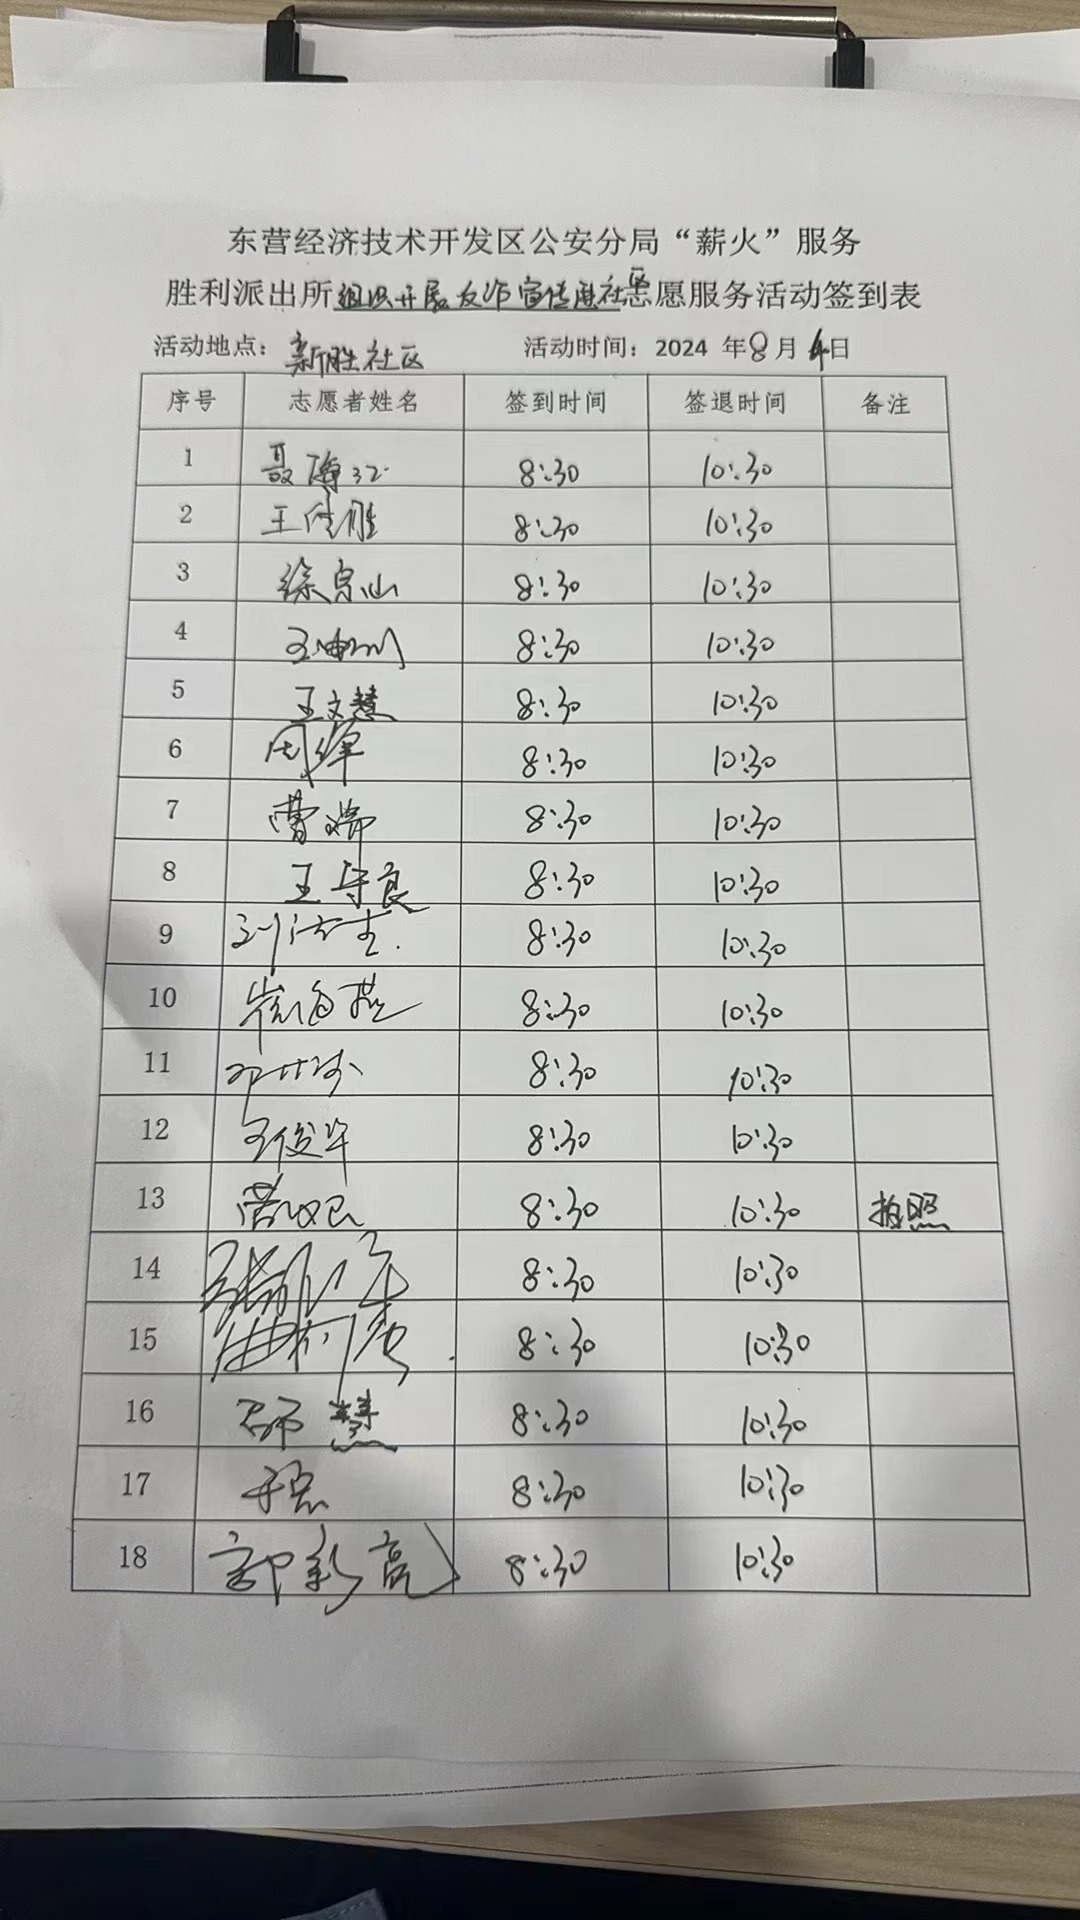 东营经济技术开发区公安分局“薪火”服务
胜利派出所组织开展反诈宣传进社区志愿服务活动签到表
活动地点：新胜社区 活动时间：2024 年8月4日
序号 志愿者姓名 签到时间 签退时间 备注
1 聂海江 8:30 10:30
2 王佳胜 8:30 10:30
3 徐宗山 8:30 10:30
4 王 8:30 10:30
5 王文慧 8:30 10:30
6 周锋 8:30 10:30
7 曹瑞 8:30 10:30
8 王守良 8:30 10:30
9 刘 8:30 10:30
10 崔海燕 8:30 10:30
11 8:30 10:30
12 王俊华 8:30 10:30
13 8:30 10:30 拍照
14 张 8:30 10:30
15 曲 8:30 10:30
16 邵慧 8:30 10:30
17 8:30 10:30
18 郭新亮 8:30 10:30